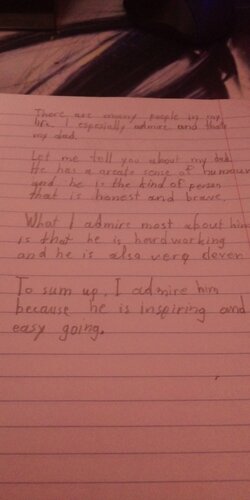 There are many people in my
life I espesially admire and thats
my dad.
Let me tell you about my dad.
He has a greate sense of humour
and he is the kind of person
that is honest and brave.
What I admire most about him
is that he is hardworking
and he is also very clever
To sum up, I admire him
because he is inspiring and
easy going.